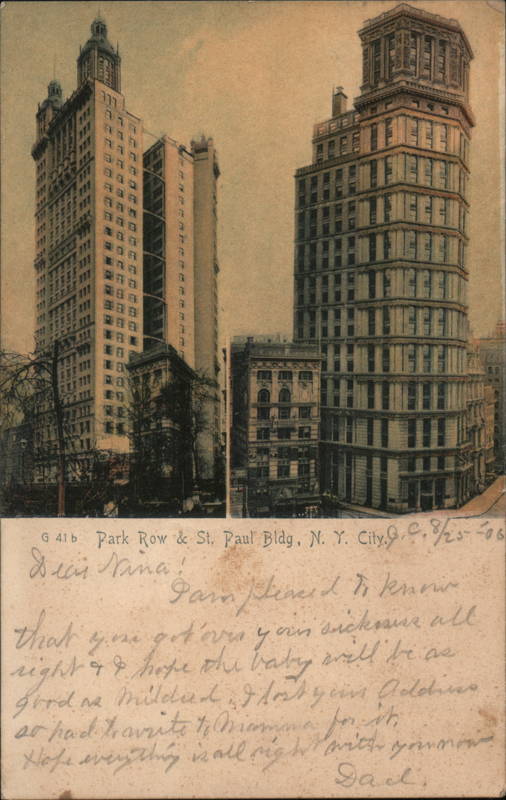 G 41b Park Row & St. Paul Bldg, N. Y. City.
J.C. 8/25-'06
Dear Nina!
I am pleased to know
that you got over your sickness all
right & I hope the baby will be as
good as Mildred. I lost your Address
so had to write to Mamma for it.
Hope everything is all right with you now
Dad.